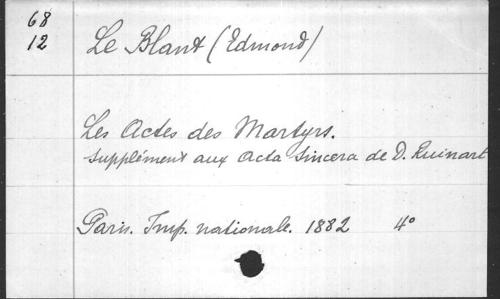 68
12
Le Blant (Edmond)
Les Actes des Martyrs.
Supplément aux Acta Sincera de D. Ruinart
Paris. Imp. nationale. 1882 4°